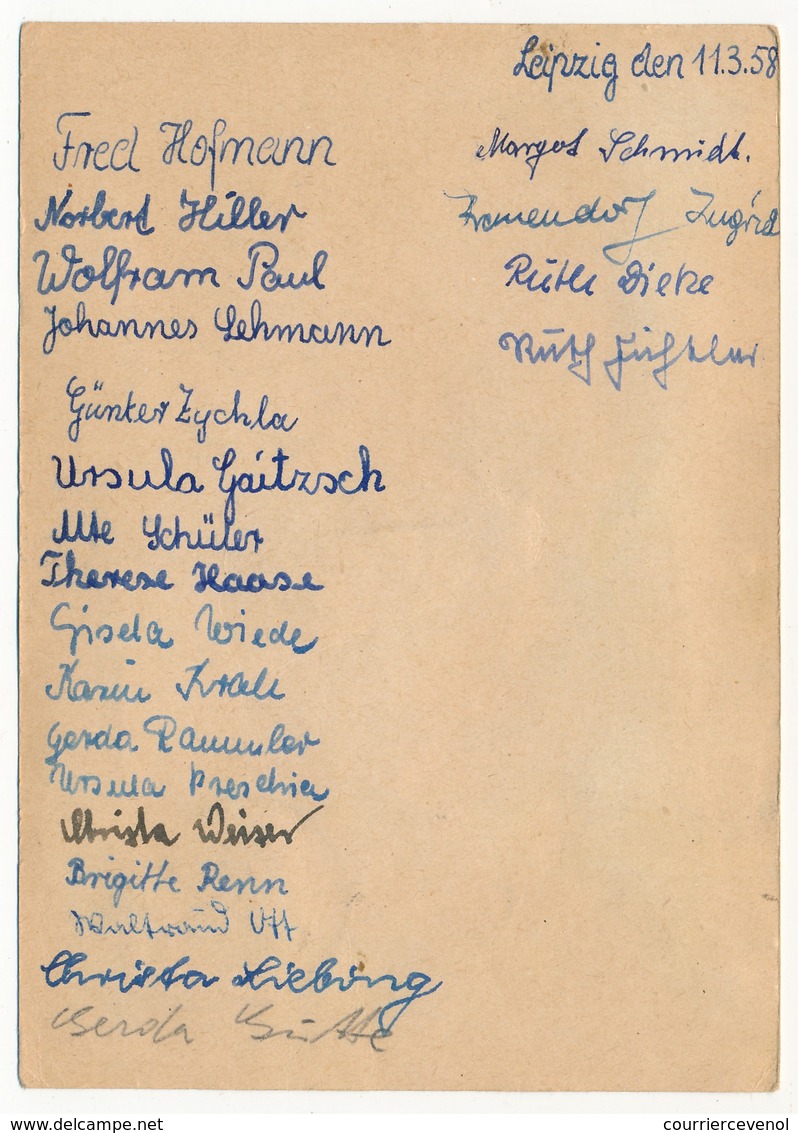 Leipzig den 11.3.58
Fred Hofmann
Norbert Hiller
Wolfram Paul
Johannes Lehmann
Günter Zychla
Ursula Gaitzsch
Ute Schüler
Therese Haase
Gisela Wiede
Karin
Gerda Rammler
Ursula
Christa Weiser
Brigitte Renn
Waltraud Ott
Christa Liebing
Gerda
Margot Schmidt.
Ingrid
Ruth Dietze
Ruth Fichtler
www.delcampe.net
courriercevenol